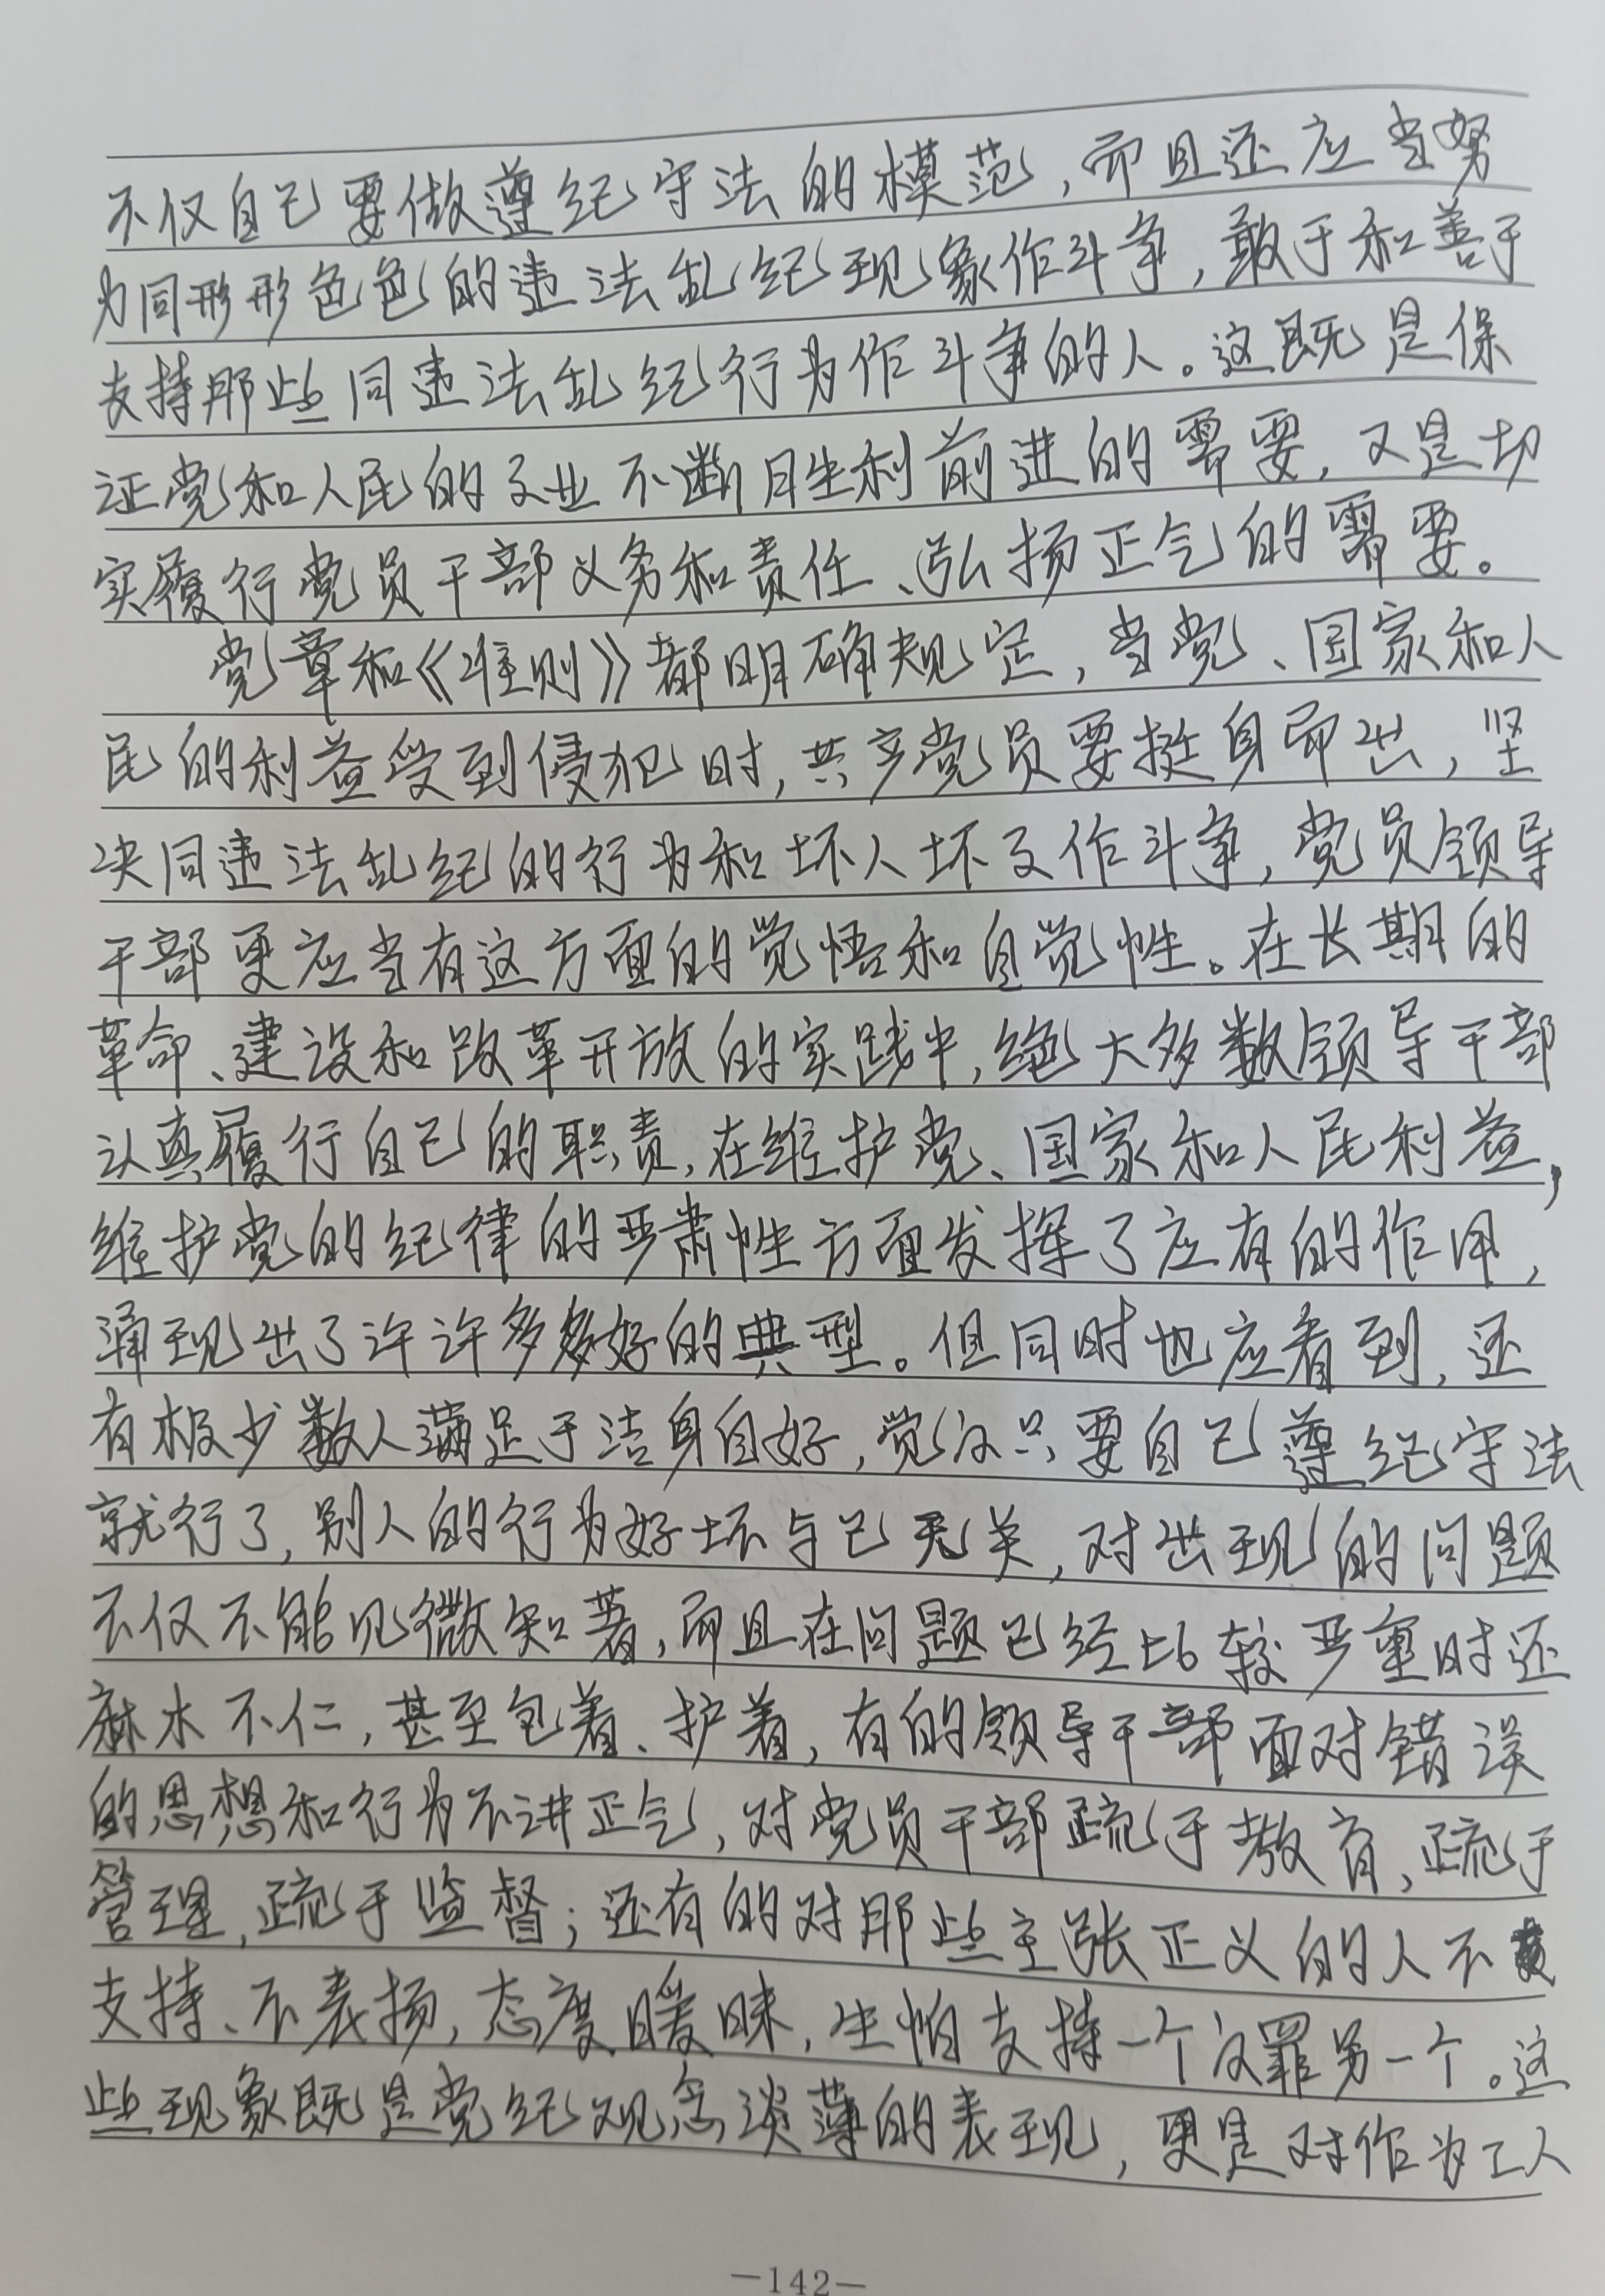 不仅自己要做遵纪守法的模范，而且还应当努
力同形形色色的违法乱纪现象作斗争，敢于和善于
支持那些同违法乱纪行为作斗争的人。这既是保
证党和人民的事业不断胜利前进的需要，又是切
实履行党员干部义务和责任、弘扬正气的需要。
党章和《准则》都明确规定，当党、国家和人
民的利益受到侵犯时，共产党员要挺身而出，坚
决同违法乱纪的行为和坏人坏事作斗争，党员领导
干部更应当有这方面的觉悟和自觉性。在长期的
革命、建设和改革开放的实践中，绝大多数领导干部
认真履行自己的职责，在维护党、国家和人民利益，
维护党的纪律的严肃性方面发挥了应有的作用，
涌现出了许许多多好的典型。但同时也应看到，还
有极少数人满足于洁身自好，觉得只要自己遵纪守法
就行了，别人的行为好坏与己无关，对出现的问题
不仅不能见微知著，而且在问题已经比较严重时还
麻木不仁，甚至包着、护着，有的领导干部面对错误
的思想和行为不讲正气，对党员干部疏于教育，疏于
管理，疏于监督；还有的对那些主张正义的人不
支持、不表扬，态度暖昧，生怕支持一个得罪另一个。这
些现象既是党纪观念淡薄的表现，更是对作为工人
—142—